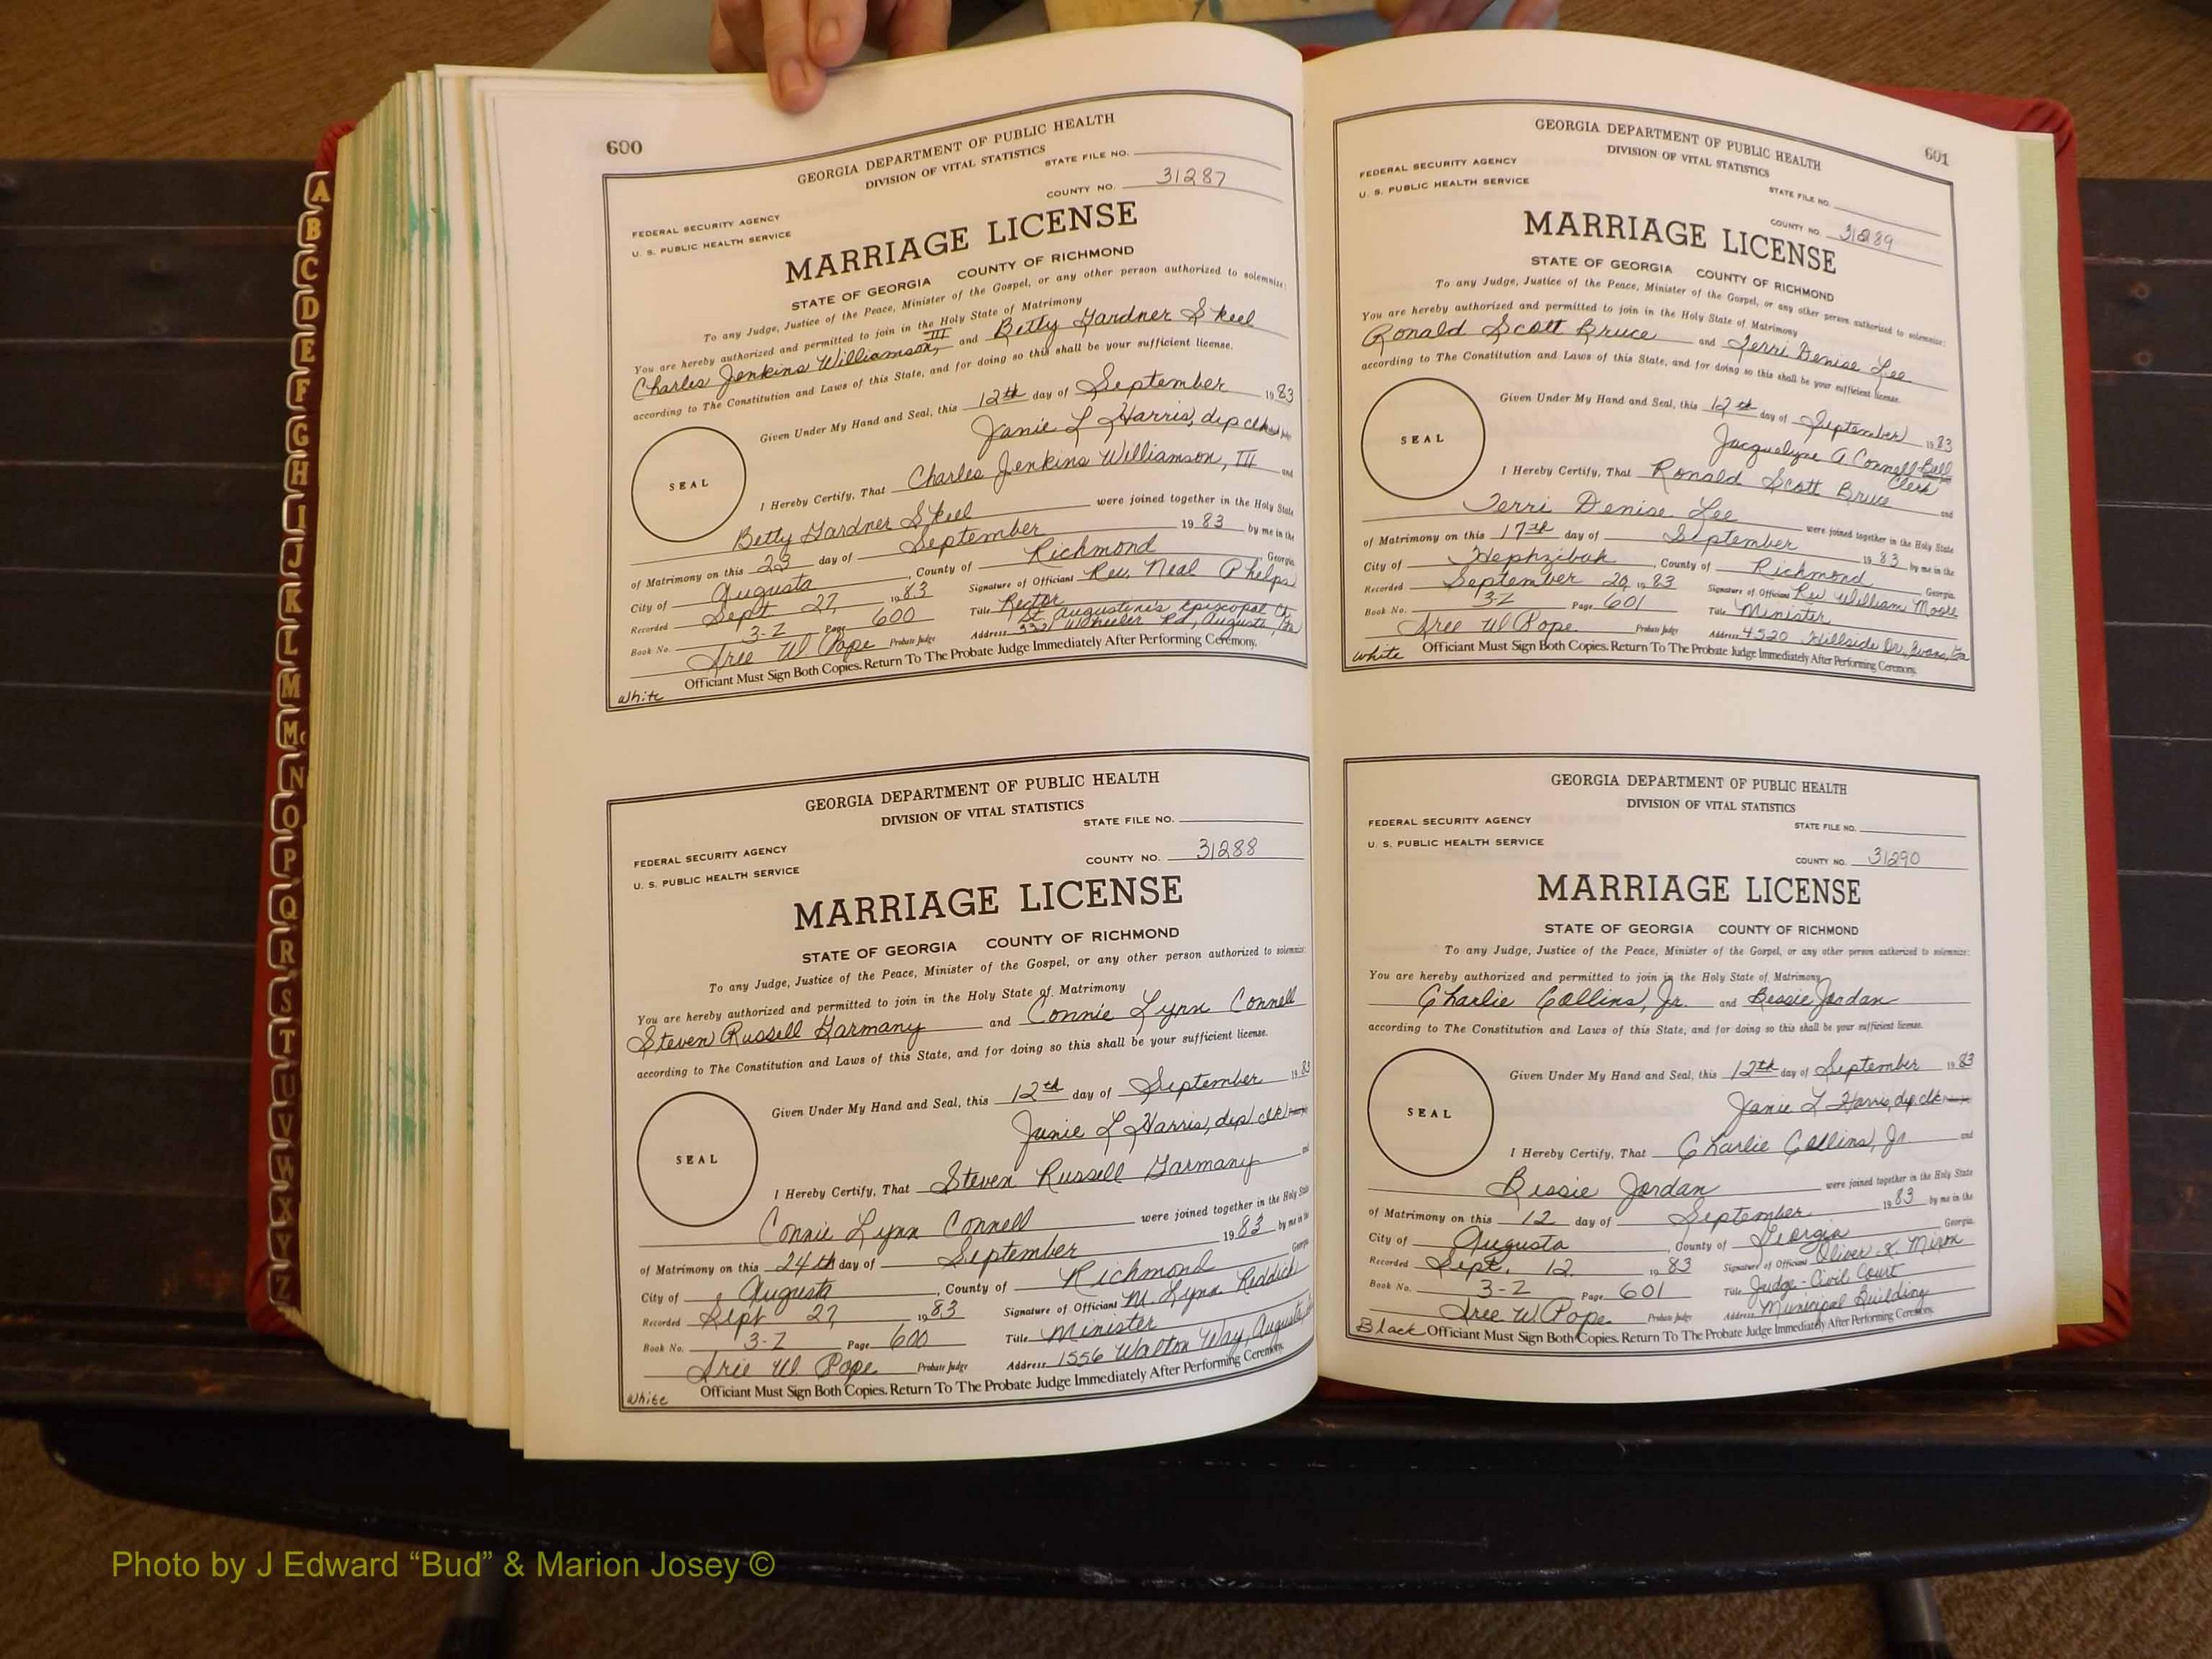 A
B
C
D
E
F
G
H
I
J
K
L
M
Mc
N
O
P
Q
R
S
T
U
V
W
X
Y
Z
600
GEORGIA DEPARTMENT OF PUBLIC HEALTH
DIVISION OF VITAL STATISTICS
STATE FILE NO.
COUNTY NO. 31287
FEDERAL SECURITY AGENCY
U. S. PUBLIC HEALTH SERVICE
MARRIAGE LICENSE
STATE OF GEORGIA COUNTY OF RICHMOND
To any Judge, Justice of the Peace, Minister of the Gospel, or any other person authorized to solemnize:
You are hereby authorized and permitted to join in the Holy State of Matrimony
Charles Jenkins Williamson, III and Betty Gardner Skeel
according to The Constitution and Laws of this State, and for doing so this shall be your sufficient license.
Given Under My Hand and Seal, this 12th day of September 1983
Janie L Harris, dep clk
SEAL
I Hereby Certify, That Charles Jenkins Williamson, III and
Betty Gardner Skeel were joined together in the Holy State
of Matrimony on this 23 day of September 1983 by me in the
City of Augusta, County of Richmond Georgia.
Recorded Sept 27, 1983 Signature of Officiant Rev. Neal Phelps
Book No. 3-Z Page 600 Title Rector
St. Augustine's Episcopal Ch.
Sree W Pope Probate Judge Address 3321 Wheeler Rd, Augusta, Ga
Officiant Must Sign Both Copies. Return To The Probate Judge Immediately After Performing Ceremony.
White
GEORGIA DEPARTMENT OF PUBLIC HEALTH
DIVISION OF VITAL STATISTICS
STATE FILE NO.
COUNTY NO. 31288
FEDERAL SECURITY AGENCY
U. S. PUBLIC HEALTH SERVICE
MARRIAGE LICENSE
STATE OF GEORGIA COUNTY OF RICHMOND
To any Judge, Justice of the Peace, Minister of the Gospel, or any other person authorized to solemnize:
You are hereby authorized and permitted to join in the Holy State of Matrimony
Steven Russell Garmany and Connie Lynn Connell
according to The Constitution and Laws of this State, and for doing so this shall be your sufficient license.
Given Under My Hand and Seal, this 12th day of September 1983
Janie L Harris, dep clk
SEAL
I Hereby Certify, That Steven Russell Garmany and
Connie Lynn Connell were joined together in the Holy State
of Matrimony on this 24th day of September 1983 by me in the
City of Augusta, County of Richmond Georgia
Recorded Sept 27, 1983 Signature of Officiant M. Lynn Reddick
Book No. 3-Z Page 600 Title Minister
Sree W. Pope Probate Judge Address 1556 Walton Way, Augusta,
Officiant Must Sign Both Copies. Return To The Probate Judge Immediately After Performing Ceremony.
White
601
GEORGIA DEPARTMENT OF PUBLIC HEALTH
DIVISION OF VITAL STATISTICS
FEDERAL SECURITY AGENCY
U. S. PUBLIC HEALTH SERVICE
STATE FILE NO.
COUNTY NO. 31289
MARRIAGE LICENSE
STATE OF GEORGIA COUNTY OF RICHMOND
To any Judge, Justice of the Peace, Minister of the Gospel, or any other person authorized to solemnize:
You are hereby authorized and permitted to join in the Holy State of Matrimony
Ronald Scott Bruce and Terri Denise Lee
according to The Constitution and Laws of this State, and for doing so this shall be your sufficient license.
Given Under My Hand and Seal, this 12th day of September 1983
Jacquelyne A. Connell-Bell
Clerk
SEAL
I Hereby Certify, That Ronald Scott Bruce and
Terri Denise Lee were joined together in the Holy State
of Matrimony on this 17th day of September 1983 by me in the
City of Hephzibah, County of Richmond Georgia.
Recorded September 20, 1983 Signature of Officiant Rev William Moore
Book No. 3-Z Page 601 Title Minister
Sree W Pope Probate Judge Address 4520 Hillside Dr, Evans, Ga
white Officiant Must Sign Both Copies. Return To The Probate Judge Immediately After Performing Ceremony.
GEORGIA DEPARTMENT OF PUBLIC HEALTH
DIVISION OF VITAL STATISTICS
FEDERAL SECURITY AGENCY
STATE FILE NO.
U. S. PUBLIC HEALTH SERVICE
COUNTY NO. 31290
MARRIAGE LICENSE
STATE OF GEORGIA COUNTY OF RICHMOND
To any Judge, Justice of the Peace, Minister of the Gospel, or any other person authorized to solemnize:
You are hereby authorized and permitted to join in the Holy State of Matrimony
Charlie Collins, Jr. and Bessie Jordan
according to The Constitution and Laws of this State, and for doing so this shall be your sufficient license.
Given Under My Hand and Seal, this 12th day of September 1983
Janie L Harris, dep clk
SEAL
I Hereby Certify, That Charlie Collins, Jr and
Bessie Jordan were joined together in the Holy State
of Matrimony on this 12 day of September 1983 by me in the
City of Augusta, County of Georgia Georgia.
Recorded Sept. 12 1983 Signature of Officiant Oliver K. Mixon
Book No. 3-Z Page 601 Title Judge-Civil Court
Sree W Pope Probate Judge Address Municipal Building
Black Officiant Must Sign Both Copies. Return To The Probate Judge Immediately After Performing Ceremony.
Photo by J Edward “Bud” & Marion Josey ©